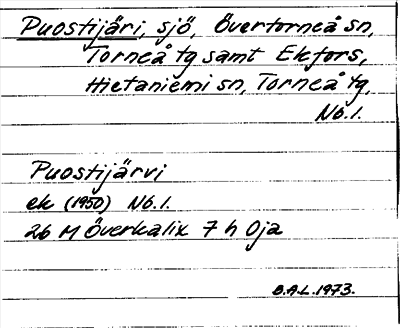 Puostijäri, sjö, Övertorneå sn,
Torneå tg samt Ekfors,
Hietaniemi sn, Torneå tg,
Nb. l.
Puostijärvi
ek (1950) Nb. l.
26 M Överkalix 7 h Oja
B.A.L. 1973.